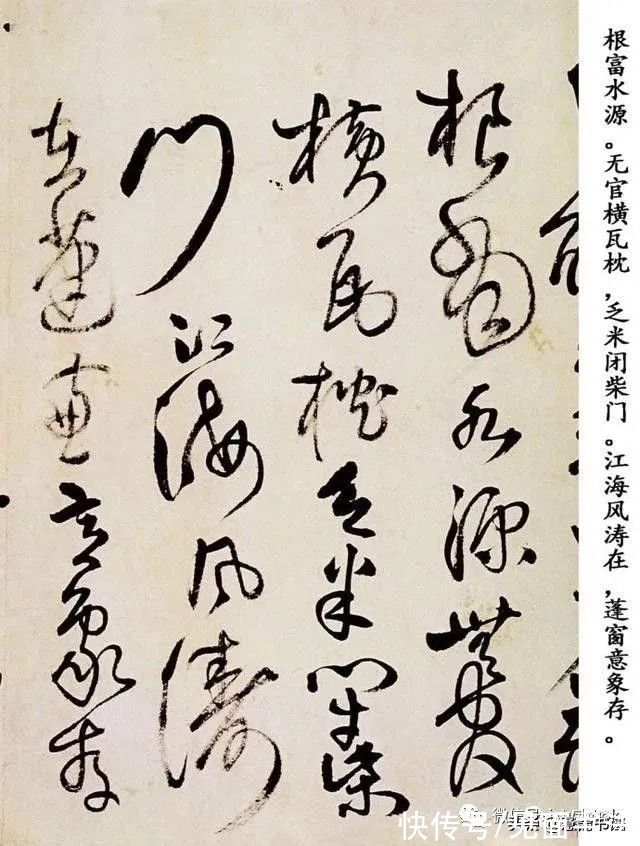 根富水源。无官横瓦枕，乏米闭柴门。江海风涛在，蓬窗意象存。
根富水源無官
橫瓦枕乏米閉柴
門江海風濤
在蓬窗意象存
微信号
快传号/